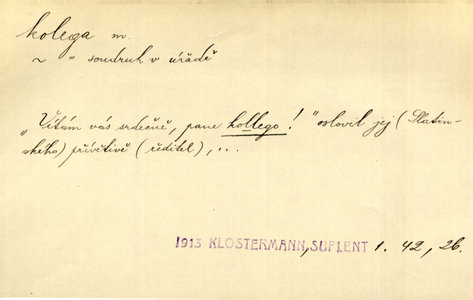 kolega m.
~ = soudruh v úřadě
„Vítám vás srdečně, pane kollego!“ oslovil jej (Slatin-
ského) přívětivě (ředitel), ...
1913 KLOSTERMANN, SUPLENT 1. 42, 26.